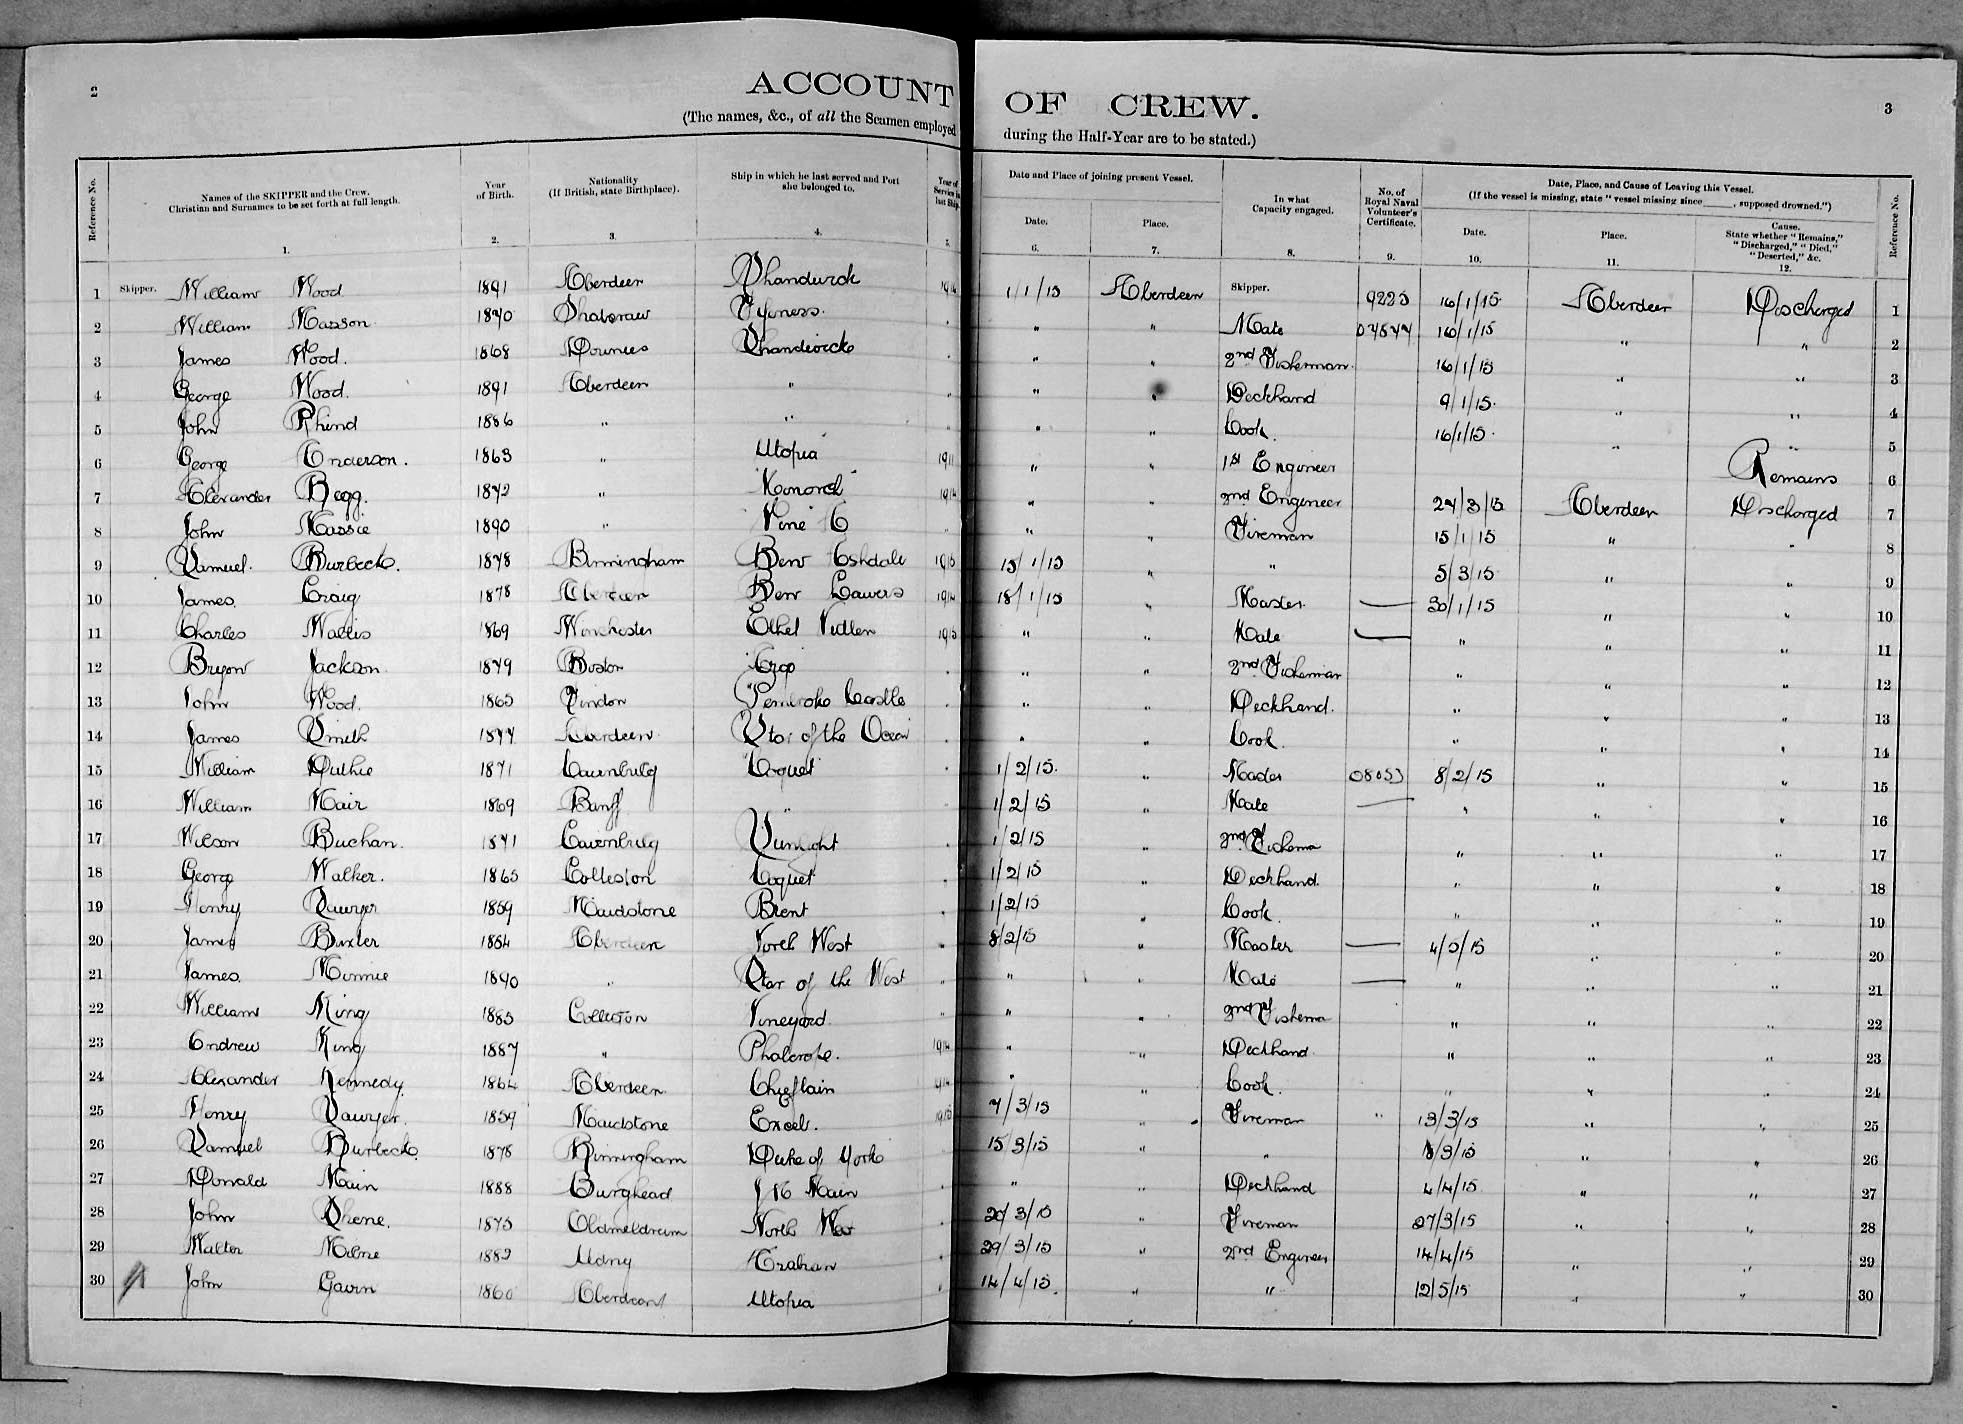 2
ACCOUNT OF CREW.
3
(The names, &c., of all the Seamen employed during the Half-Year are to be stated.)
Reference No.
Names of the SKIPPER and the Crew. Christian and Surnames to be set forth at full length.
Year of Birth.
Nationality (If British, state Birthplace).
Ship in which he last served and Port she belonged to.
Year of Service in last Ship.
Date and Place of joining present Vessel.
Date.
Place.
In what Capacity engaged.
No. of Royal Naval Volunteer's Certificate.
Date, Place, and Cause of Leaving this Vessel.
(If the vessel is missing, state "vessel missing since ____, supposed drowned.")
Date.
Place.
Cause. State whether "Remains," "Discharged," "Died," "Deserted," &c.
Reference No.
1. 2. 3. 4. 5. 6. 7. 8. 9. 10. 11. 12.
1 Skipper. William Wood 1891 Aberdeen 1914 1/1/15 Aberdeen Skipper. 9225 16/1/15 Aberdeen Discharged 1
2 William Masson 1870 " " " Mate 16/1/15 " " 2
3 James Wood. 1868 Downies " " 2nd Fisherman. 16/1/15 " " 3
4 George Wood. 1891 Aberdeen " " " " Deckhand 9/1/15 " " 4
5 John Rhind 1886 " " " " " Cook. 16/1/15 " " 5
6 George Anderson. 1863 " Utopia 1911 " " 1st Engineer Remains 6
7 Alexander Begg. 1872 " Monarch 1914 " " 2nd Engineer 27/3/15 Aberdeen Discharged 7
8 John Massie 1890 " " " " Fireman 15/1/15 " " 8
9 Samuel Burbeck. 1878 Birmingham Ben 1915 15/1/15 " " 5/3/15 " " 9
10 James Craig 1878 Aberdeen Ben Lawers 1914 18/1/15 " Master. — 30/1/15 " " 10
11 Charles Wallis 1869 Winchester Ethel 1915 " " Mate — " " " 11
12 Bryon Jackson 1879 Boston " " " 2nd Fisherman " " " 12
13 John Wood. 1865 Findon Pembroke Castle " " " Deckhand. " " " 13
14 James Smith 1877 Aberdeen Star of the Ocean " " " Cook. " " " 14
15 William Duthie 1871 Cairnbulg Coquet " 1/2/15. " Master 8/2/15 " " 15
16 William Mair 1869 Banff " 1/2/15 " Mate — " " " 16
17 Wilson Buchan. 1871 Cairnbulg Sunlight " 1/2/15 " 2nd Fisherma " " " 17
18 George Walker. 1865 Collieston Coquet " 1/2/15 " Deckhand. " " " 18
19 Henry Sawyer 1859 Maidstone Brent " 1/2/15 " Cook. " " " 19
20 James Baxter 1864 Aberdeen North West " 8/2/15 " Master — " " 20
21 James. Minnie 1870 " Star of the West " " " Mate — " " " 21
22 William King 1885 Collieston Vineyard " " " 2nd Fisherma " " " 22
23 Andrew King 1887 " Phalarope. 1914 " " Deckhand. " " " 23
24 Alexander Kennedy. 1864 Aberdeen Chieftain 1914 " " Cook. " " " 24
25 Henry Sawyer. 1859 Maidstone Excel. 1915 7/3/15 " Fireman " 13/3/15 " " 25
26 Samuel Burbeck. 1878 Birmingham Duke of York 15/3/15 " " " " 26
27 Donald Main 1888 Burghead Main " " " Deckhand 4/4/15 " " 27
28 John Shene. 1875 Oldmeldrum North West 20/3/15 " Fireman 27/3/15 " " 28
29 Walter Milne 1882 Udny " 29/3/15 " 2nd Engineer 14/4/15 " " 29
30 John Gavin 1860 Aberdeen Utopia " 14/4/15. " " 12/5/15 " " 30